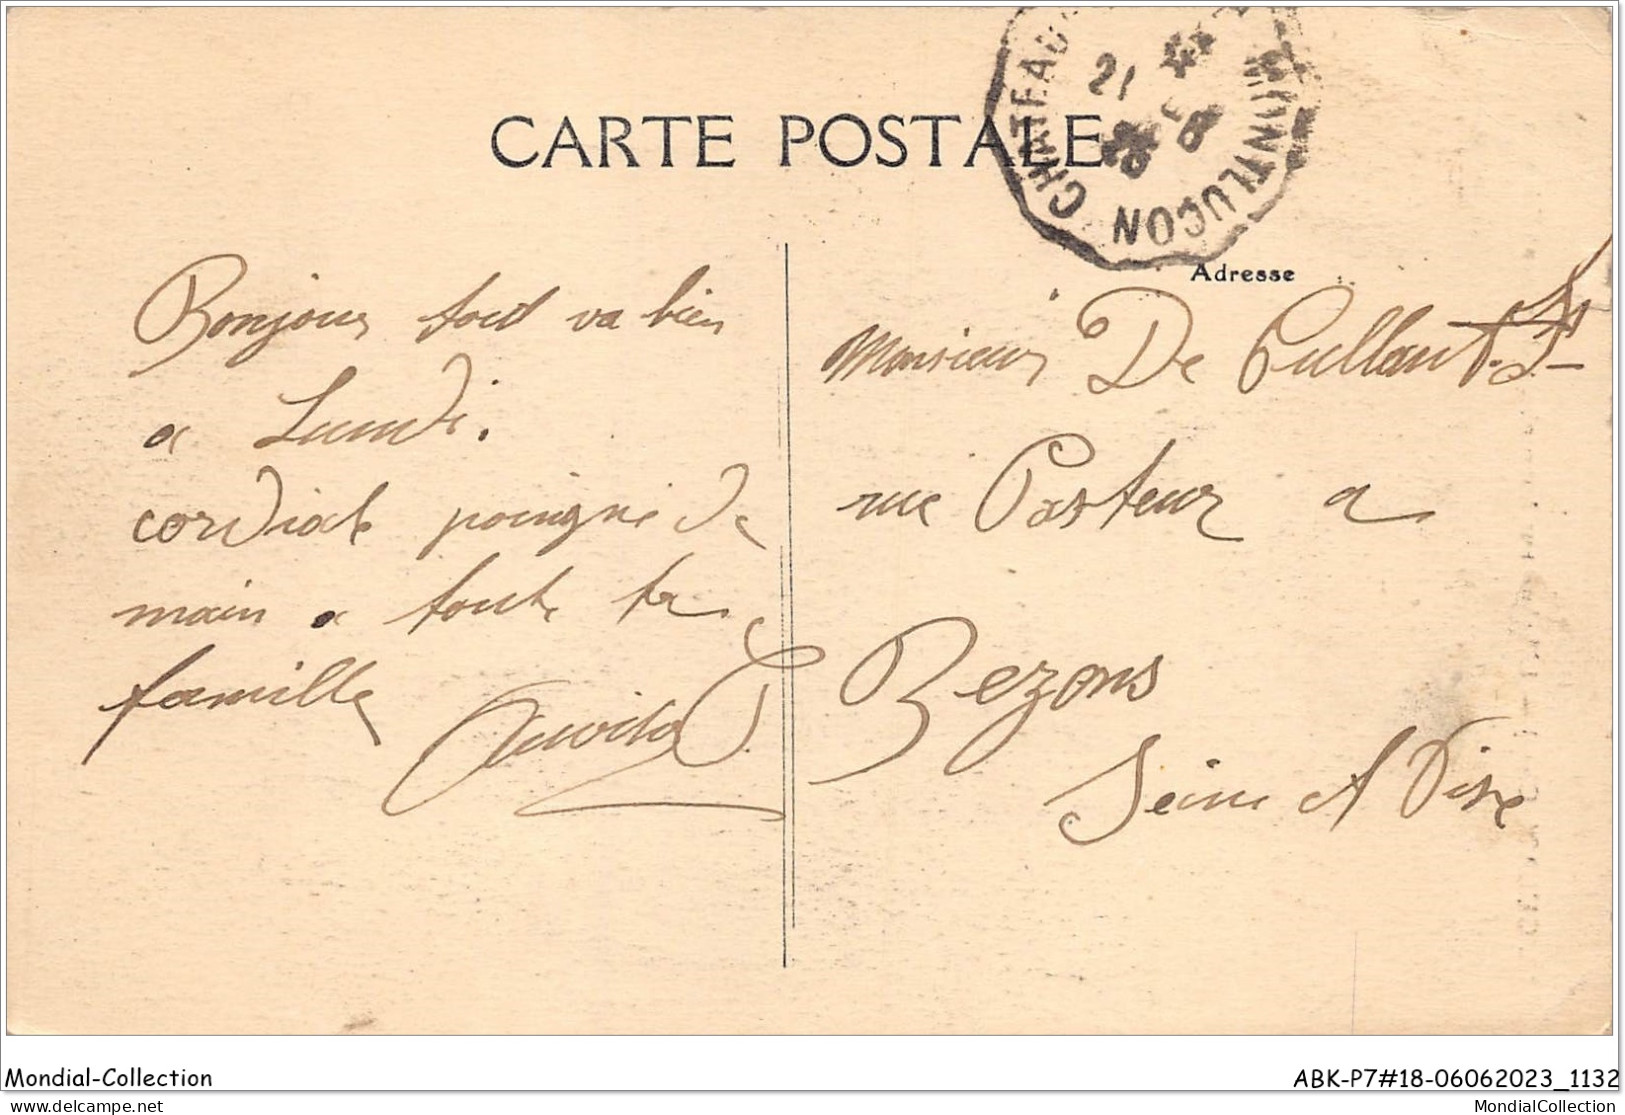 CARTE POSTALE
CHATEAU
MONTLUCON
21
Adresse
Bonjour tout va bien
a Lundi.
cordiale poigné de
main a toute ta
famille
Monsieur De
rue Pasteur a
Bezons
Seine et Oise
Mondial-Collection
ABK-P7#18-06062023_1132
delcampe.net
MondialCollection